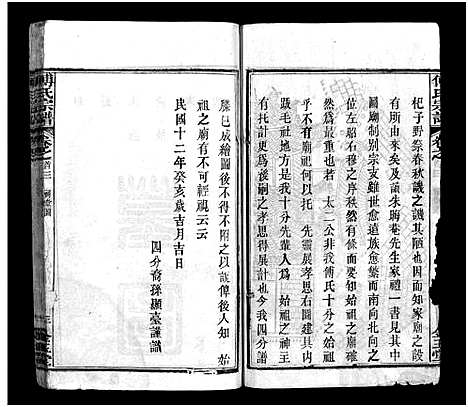 杞子野祭春秋譏之譏其陋也因而知家廟之設
有所由來矣及誦宋朱晦菴先生家禮一書見其中
圖廟制別宗支雖世愈遠族愈繁而南向北向之
位左昭右穆之序秩然有條而要皆不外乎 始祖
則信乎 始祖之當祀也若 太二公非我傅氏十分之始祖
乎不有廟祀何以托 先靈展孝思右圖建其内
聶毛社者是我十分先輩人爲 始祖之神王
計也亦爲後嗣之孝思得展計也今我四分譜
牒已成繪圖後不得不附之以誌俾後人知 始
祖之廟有不可輕視云云
民國十二年癸亥歲吉月吉日
四分裔孫顯臺謹識
傅氏宗譜
卷之首三
祠念圖